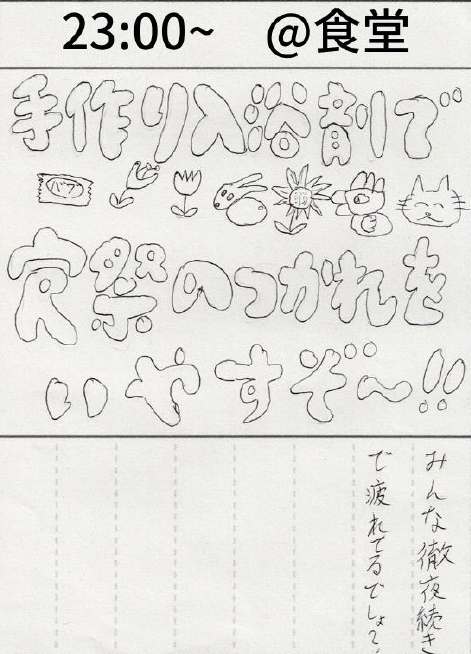 23:00~ @食堂
手作り入浴剤で
バブ
祭のつかれを
いやすぞ～!!
みんな徹夜続き
で疲れてるでしょ？